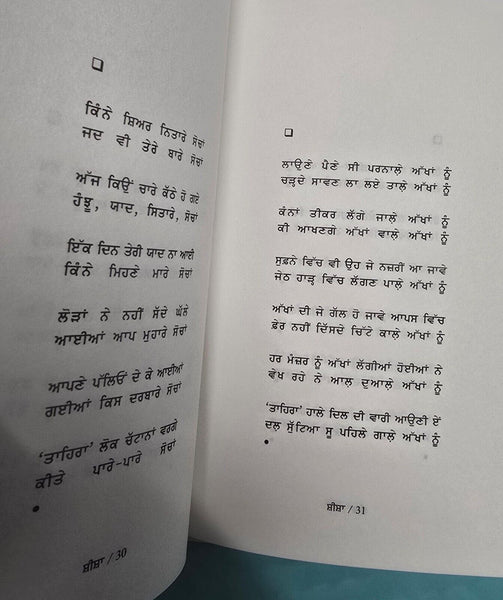 ਕਿੰਨੇ ਸ਼ਿਅਰ ਨਿਤਾਰੇ ਸੋਚਾਂ
ਜਦ ਵੀ ਤੇਰੇ ਬਾਰੇ ਸੋਚਾਂ
ਅੱਜ ਕਿਉਂ ਚਾਰੇ ਕੱਠੇ ਹੋ ਗਏ
ਹੰਝੂ, ਯਾਦ, ਸਿਤਾਰੇ, ਸੋਚਾਂ
ਇੱਕ ਦਿਨ ਤੇਰੀ ਯਾਦ ਨਾ ਆਈ
ਕਿੰਨੇ ਮਿਹਣੇ ਮਾਰੇ ਸੋਚਾਂ
ਲੋੜਾਂ ਨੇ ਨਹੀਂ ਸੱਦੇ ਘੱਲੇ
ਆਈਆਂ ਆਪ ਮੁਹਾਰੇ ਸੋਚਾਂ
ਆਪਣੇ ਪੱਲਿਓਂ ਦੇ ਕੇ ਆਈਆਂ
ਗਈਆਂ ਕਿਸ ਦਰਬਾਰੇ ਸੋਚਾਂ
'ਤਾਹਿਰਾ' ਲੋਕ ਚੱਟਾਨਾਂ ਵਰਗੇ
ਕੀਤੇ ਪਾਰੇ-ਪਾਰੇ ਸੋਚਾਂ
ਸ਼ੀਸ਼ਾ / 30
ਲਾਉਣੇ ਪੈਣੇ ਸੀ ਪਰਨਾਲੇ ਅੱਖਾਂ ਨੂੰ
ਚੜ੍ਹਦੇ ਸਾਵਣ ਲਾ ਲਏ ਤਾਲੇ ਅੱਖਾਂ ਨੂੰ
ਕੰਨਾਂ ਤੀਕਰ ਲੱਗੇ ਜਾਲੇ ਅੱਖਾਂ ਨੂੰ
ਕੀ ਆਖਣਗੇ ਅੱਖਾਂ ਵਾਲੇ ਅੱਖਾਂ ਨੂੰ
ਸੁਫ਼ਨੇ ਵਿੱਚ ਵੀ ਉਹ ਜੇ ਨਜ਼ਰੀਂ ਆ ਜਾਵੇ
ਜੇਠ ਹਾੜ੍ਹ ਵਿੱਚ ਲੱਗਣ ਪਾਲ਼ੇ ਅੱਖਾਂ ਨੂੰ
ਅੱਖਾਂ ਦੀ ਜੇ ਗੱਲ ਹੋ ਜਾਵੇ ਆਪਸ ਵਿੱਚ
ਫ਼ੇਰ ਨਹੀਂ ਦਿੱਸਦੇ ਚਿੱਟੇ ਕਾਲ਼ੇ ਅੱਖਾਂ ਨੂੰ
ਹਰ ਮੰਜ਼ਰ ਨੂੰ ਅੱਖਾਂ ਲੱਗੀਆਂ ਹੋਈਆਂ ਨੇ
ਵੇਖ ਰਹੇ ਨੇ ਆਲ਼ ਦੁਆਲ਼ੇ ਅੱਖਾਂ ਨੂੰ
'ਤਾਹਿਰਾ' ਹਾਲੇ ਦਿਲ ਦੀ ਵਾਰੀ ਆਉਣੀ ਏਂ
ਦਲ਼ ਸੁੱਟਿਆ ਸੂ ਪਹਿਲੇ ਗਾਲੇ ਅੱਖਾਂ ਨੂੰ
ਸ਼ੀਸ਼ਾ / 31